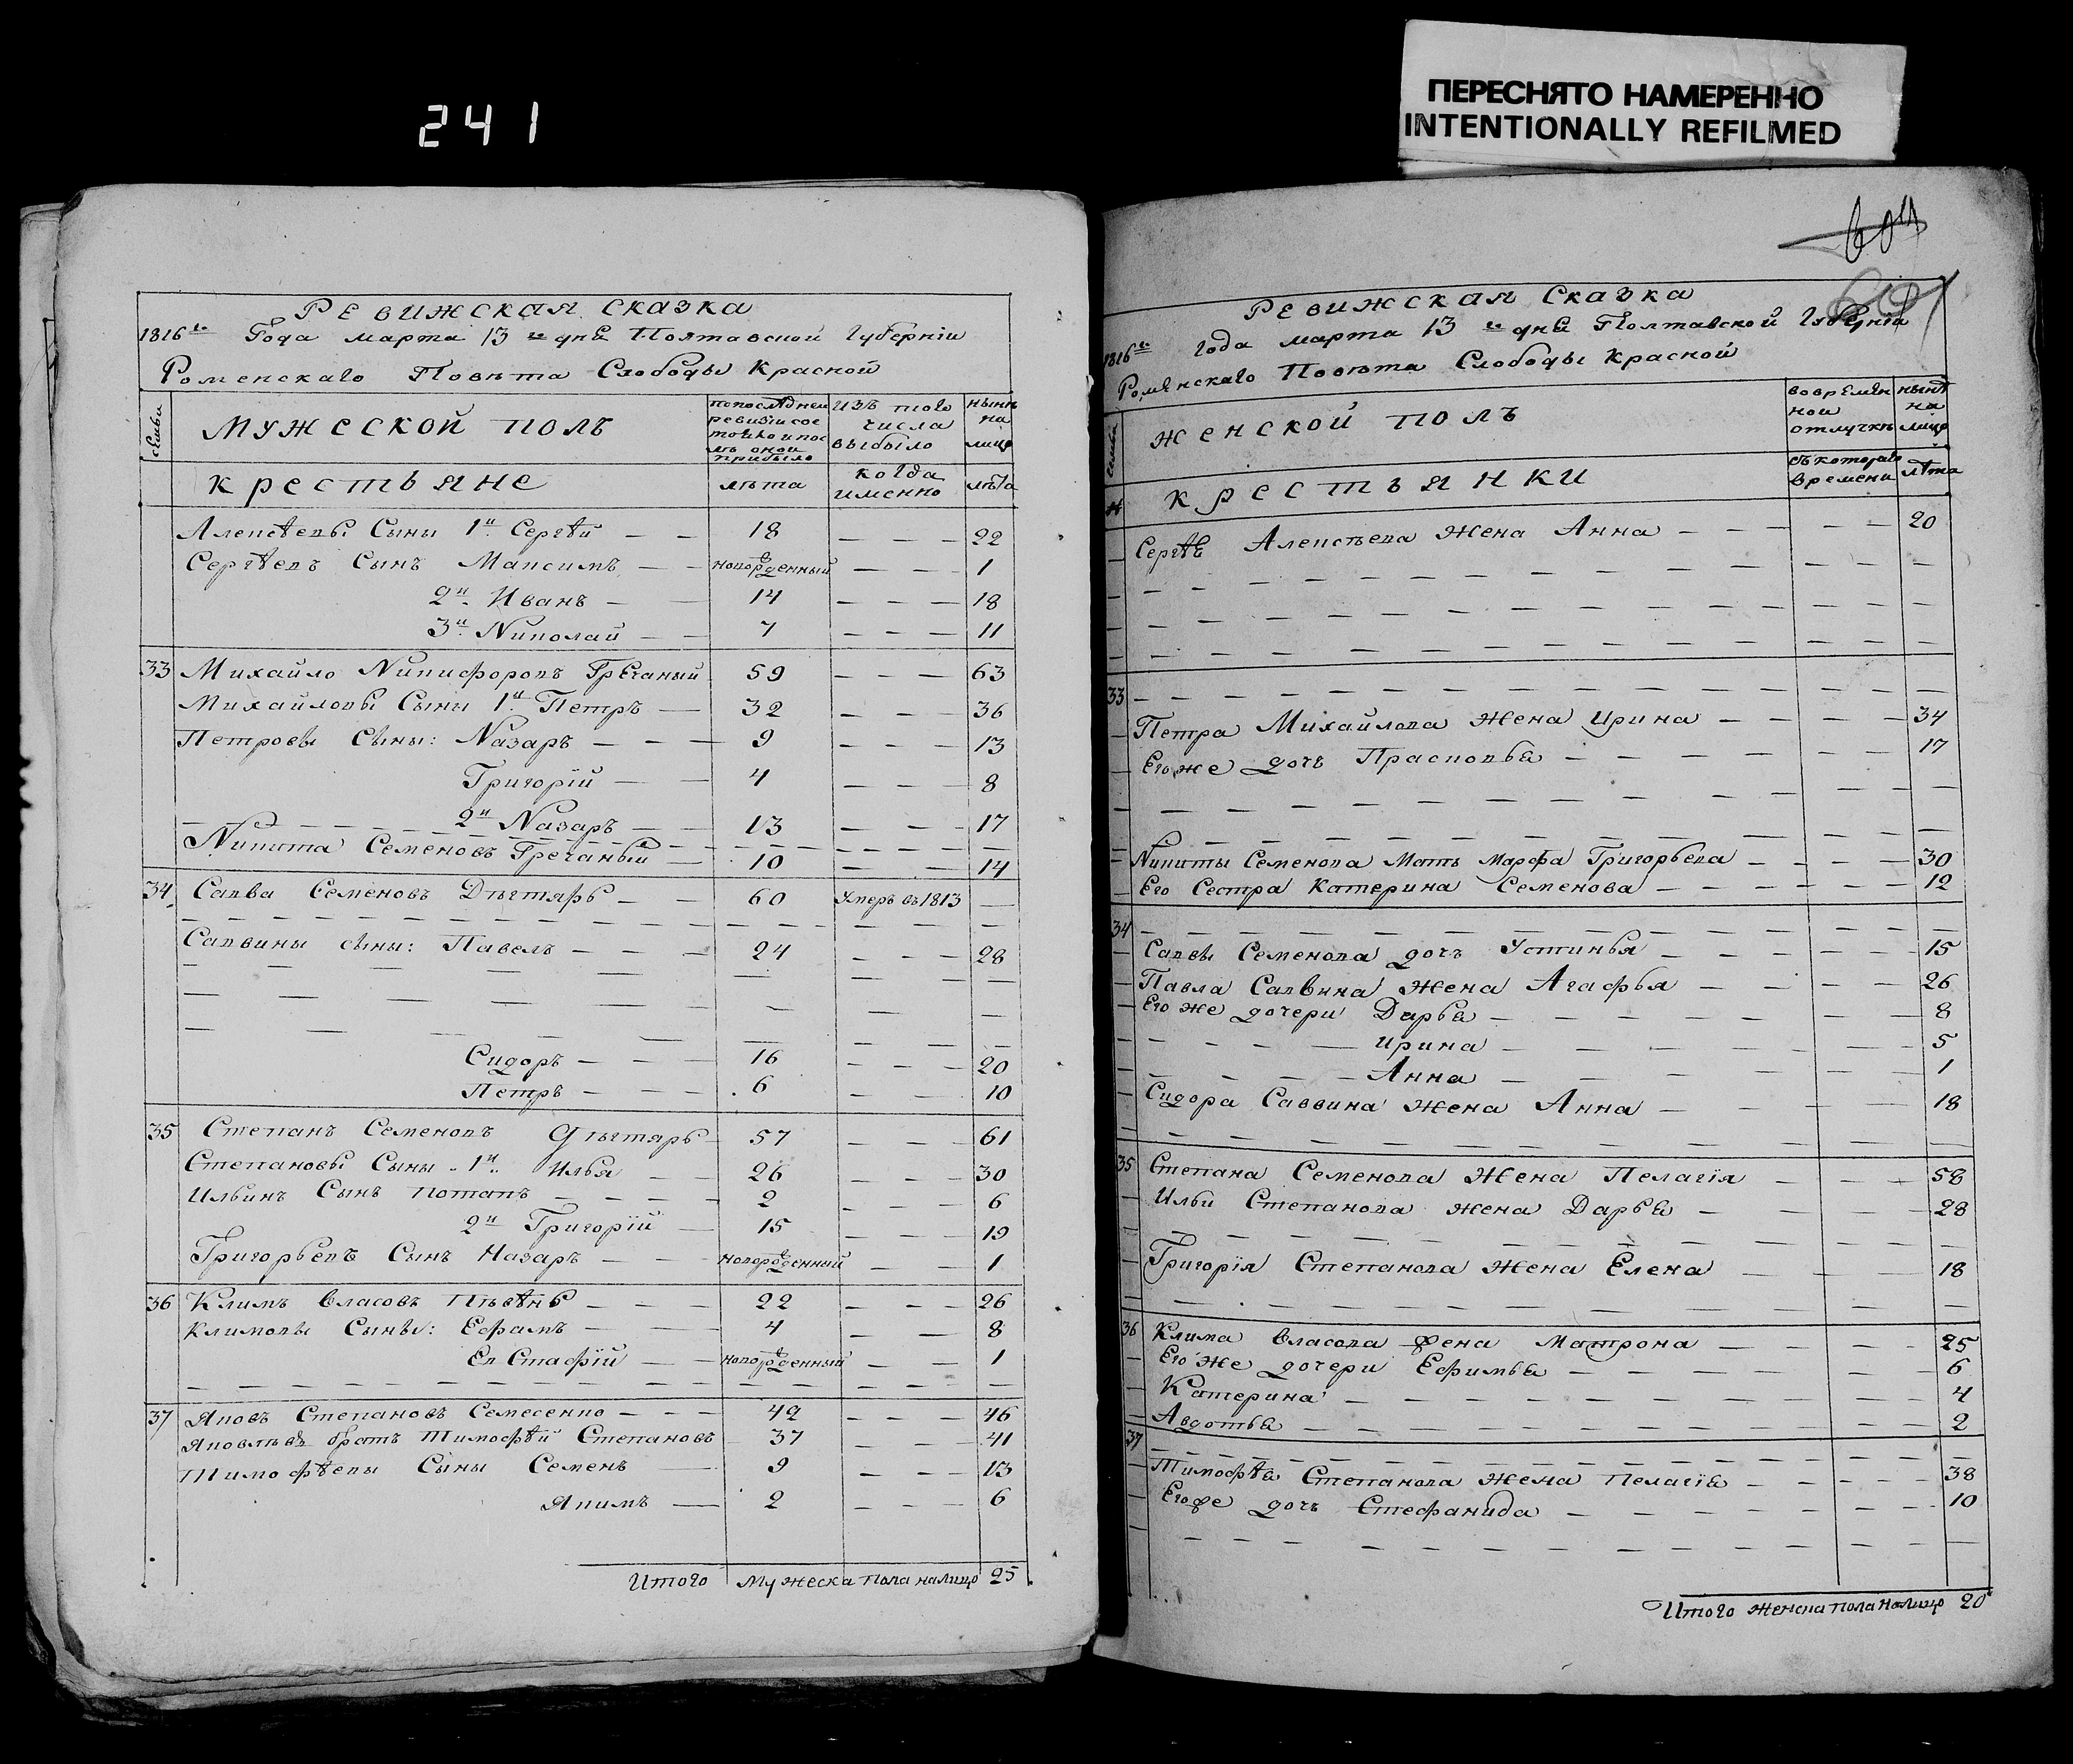 241
ПЕРЕСНЯТО НАМЕРЕННО
INTENTIONALLY REFILMED
Ревижская сказка
1816го Года марта 13го днѣ Полтавской Губерніи
Роменскаго Повѣта Слободы Красной
семьи
Мужеской полъ
попослѣдней ревизіи состояло и послѣ оной прибыло
изъ того числа выбыло
нынѣ на лицо
крестьяне
лѣта
когда именно
лѣта
Алексѣевы Сыны 1й Сергѣй — — 18 — — — 22
Сергѣевъ Сынъ Максимъ — — новорожденный — — — 1
2й Иванъ — — 14 — — — 18
3й Николай — — 7 — — — 11
33 Михайло Никифоровъ Гречаный 59 — — — 63
Михайловы Сыны 1й Петръ — 32 — — — 36
Петровы Сыны: Назаръ — — — 9 — — — 13
Григорій — — 4 — — — 8
2й Назаръ — — 13 — — — 17
Никита Семеновъ Гречаный — 10 — — — 14
34 Савва Семеновъ Дѣгтярь — — 60 Умеръ въ 1813 —
Саввины сыны: Павелъ — — — 24 — — — 28
Сидоръ — — 16 — — — 20
Петръ — — — 6 — — — 10
35 Степанъ Семеновъ Дѣгтярь 57 — — — 61
Степановы Сыны 1й Илья — 26 — — — 30
Ильинъ Сынъ Потапъ — — — 2 — — — 6
2й Григорій — 15 — — — 19
Григорьевъ Сынъ Назаръ — — новорожденный — — 1
36 Климъ Власовъ Пѣвѣнь — — — 22 — — — 26
Климовы Сыны: Ефрамъ — — 4 — — 8
Евстафій — — новорожденный — — 1
37 Яковъ Степановъ Семесенко — — — 42 — — — 46
Яковлѣвъ братъ Тимофѣй Степановъ 37 — — — 41
Тимофѣевы Сыны Семенъ — 9 — — — 13
Якимъ — 2 — — — 6
Итого Мужеска пола налицо 25
604
601
Ревижская Сказка
1816го года марта 13го днѣ Полтавской Губерніи
Роменскаго Повѣта Слободы Красной
семьи
женской полъ
вовременной отлучкѣ
нынѣ на лицо
крестьянки
съ котораго времени
лѣта
Сергѣя Алексѣева жена Анна — — — — — 20
33
Петра Михайлова жена Ирина — — — — — 34
Его же дочь Прасковья — — — — 17
Никиты Семенова Мать Марфа Григорьева — — — — 30
Его Сестра Катерина Семенова — — — — — — 12
34
Саввы Семенова дочь Устинья — — — — — 15
Павла Саввина жена Агафья — — — — 26
Его же дочери Дарья — — — — — — 8
Ирина — — — — — 5
Анна — — — — — 1
Сидора Саввина жена Анна — — — — 18
35 Степана Семенова жена Пелагія — — — — 58
Ильи Степанова жена Дарья — — — — 28
Григорія Степанова жена Елена — — — 18
36 Клима Власова жена Матрона — — — — 25
Его же дочери Ефимья — — — — — — 6
Катерина — — — — — — — 4
Авдотья — — — — — — — 2
37
Тимофѣя Степанова жена Пелагія — — — — 38
Егоже дочь Стефанида — — — — — — 10
Итого женска пола налицо 20